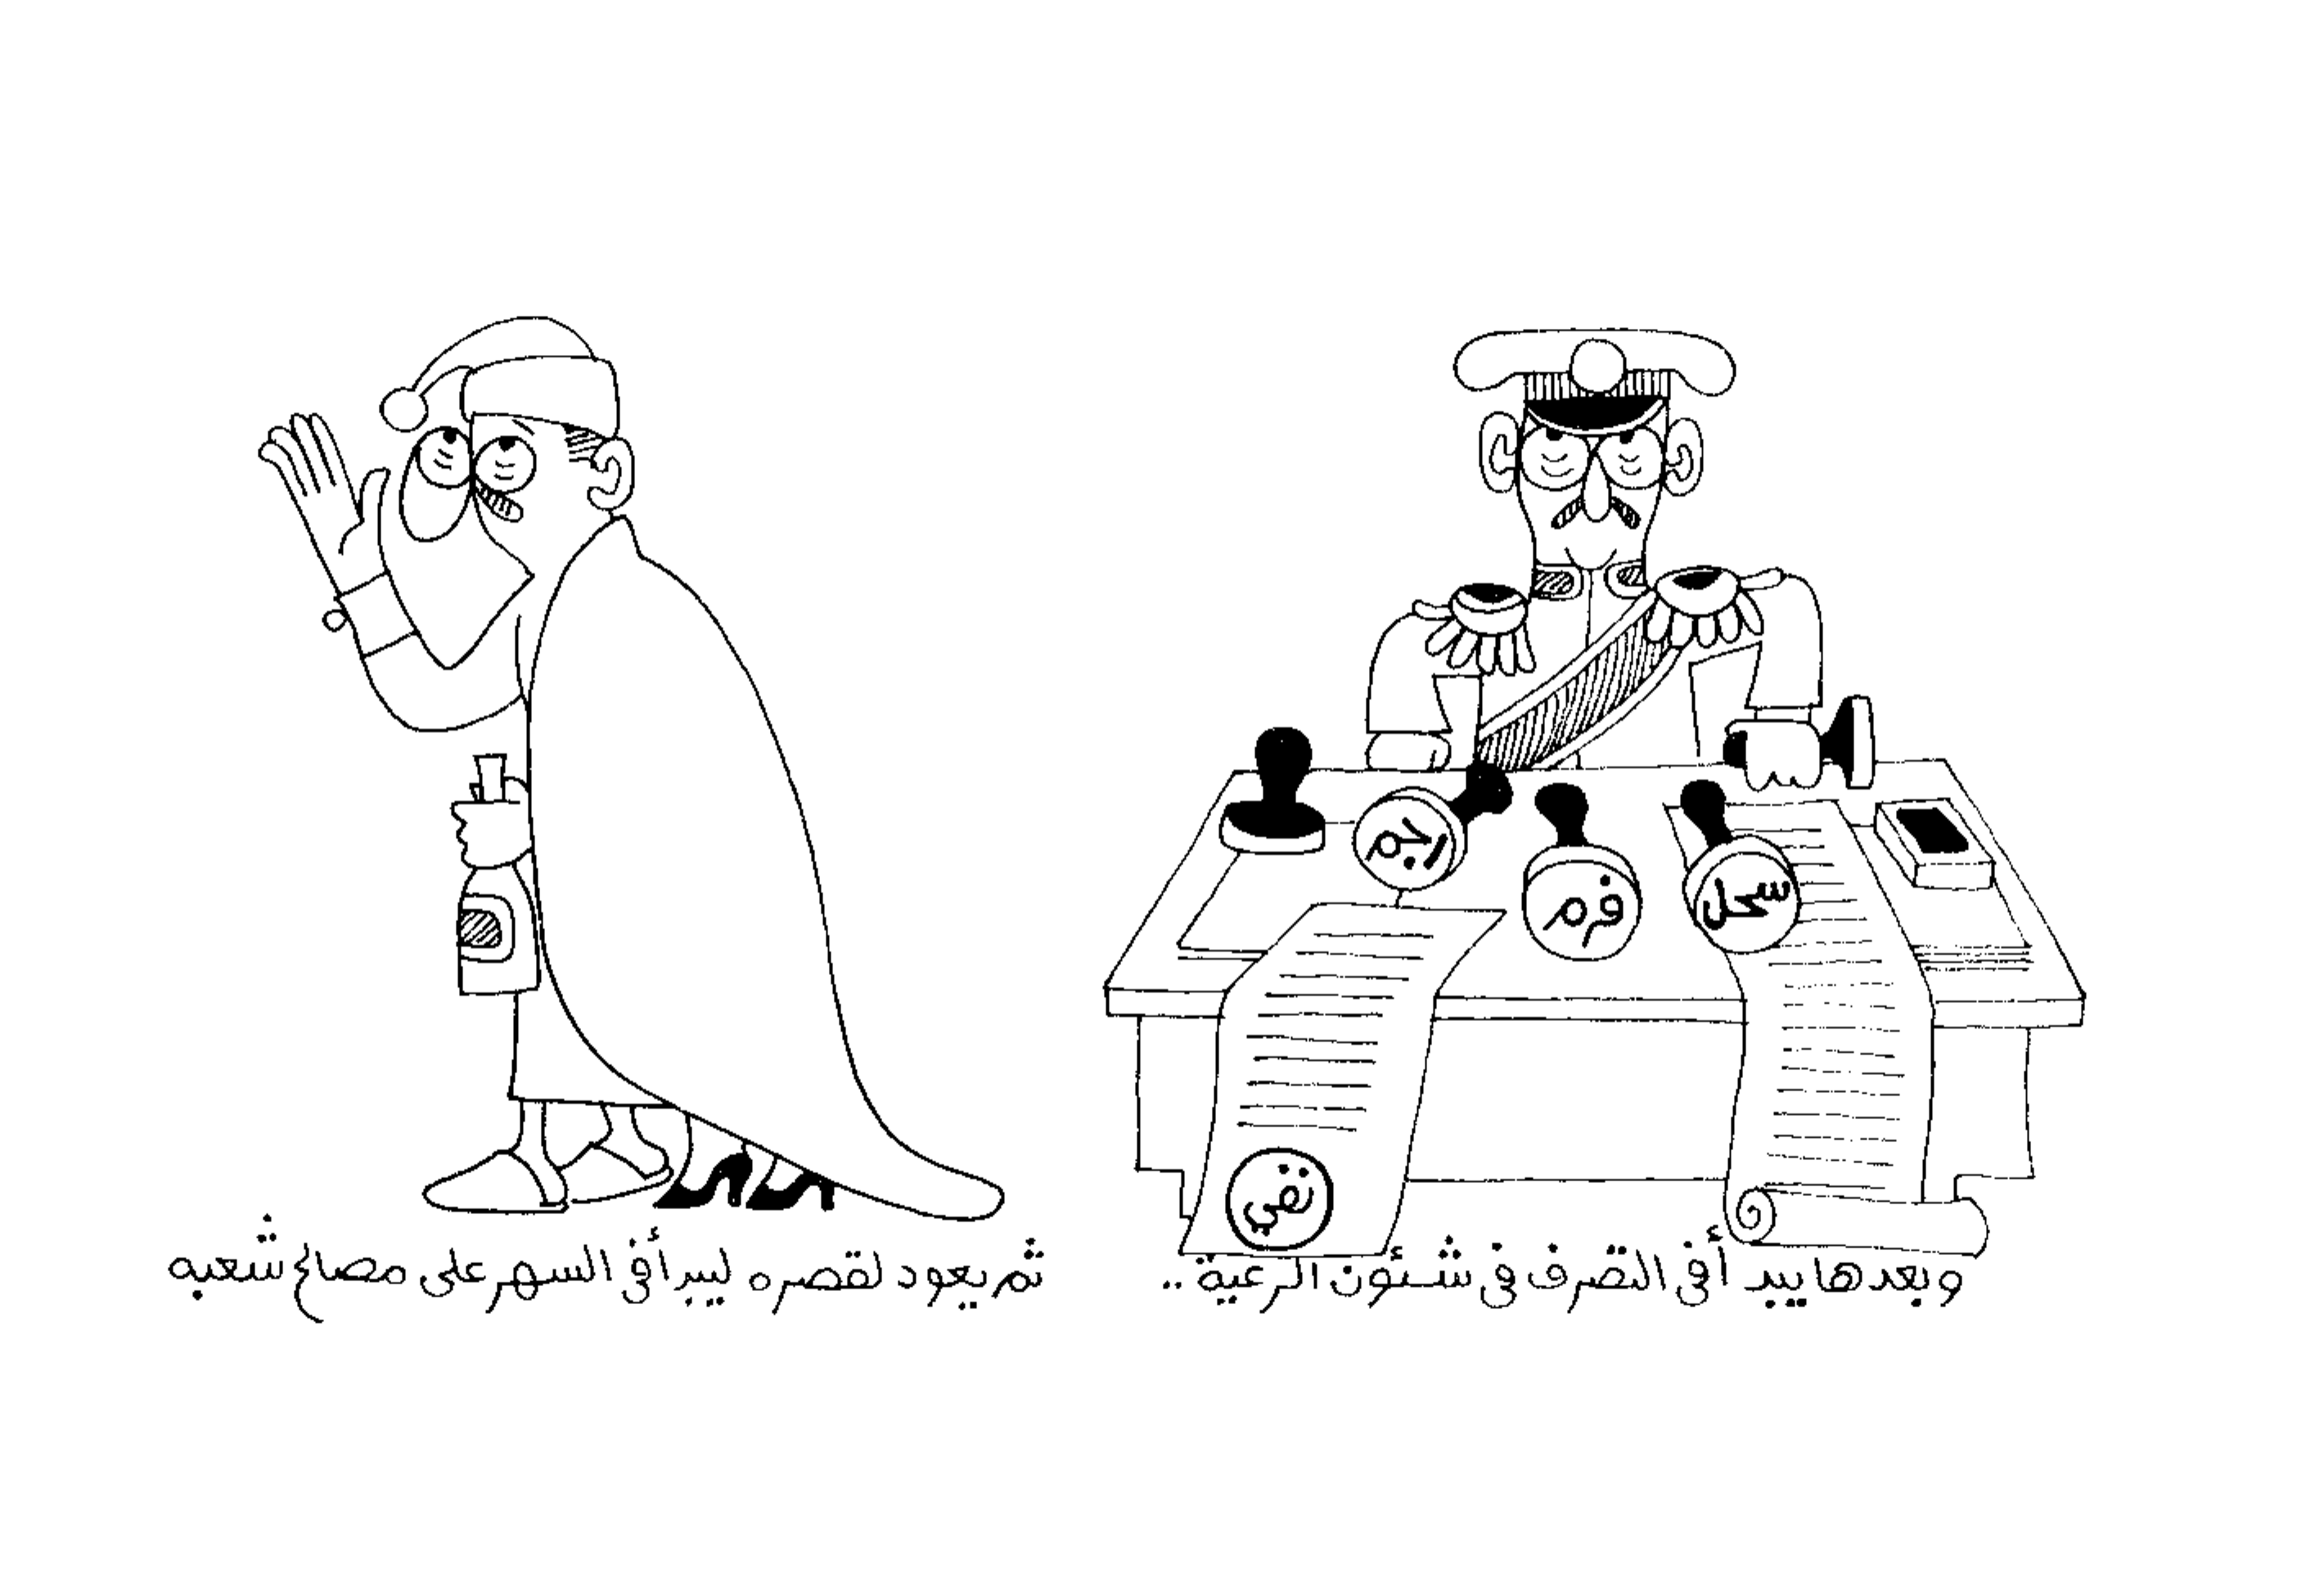 رجم
فرم
سحل
نفي
وبعدها يبدأ فى التصرف فى شئون الرعية ..
ثم يعود لقصره ليبدأ فى السهر على مصالح شعبه